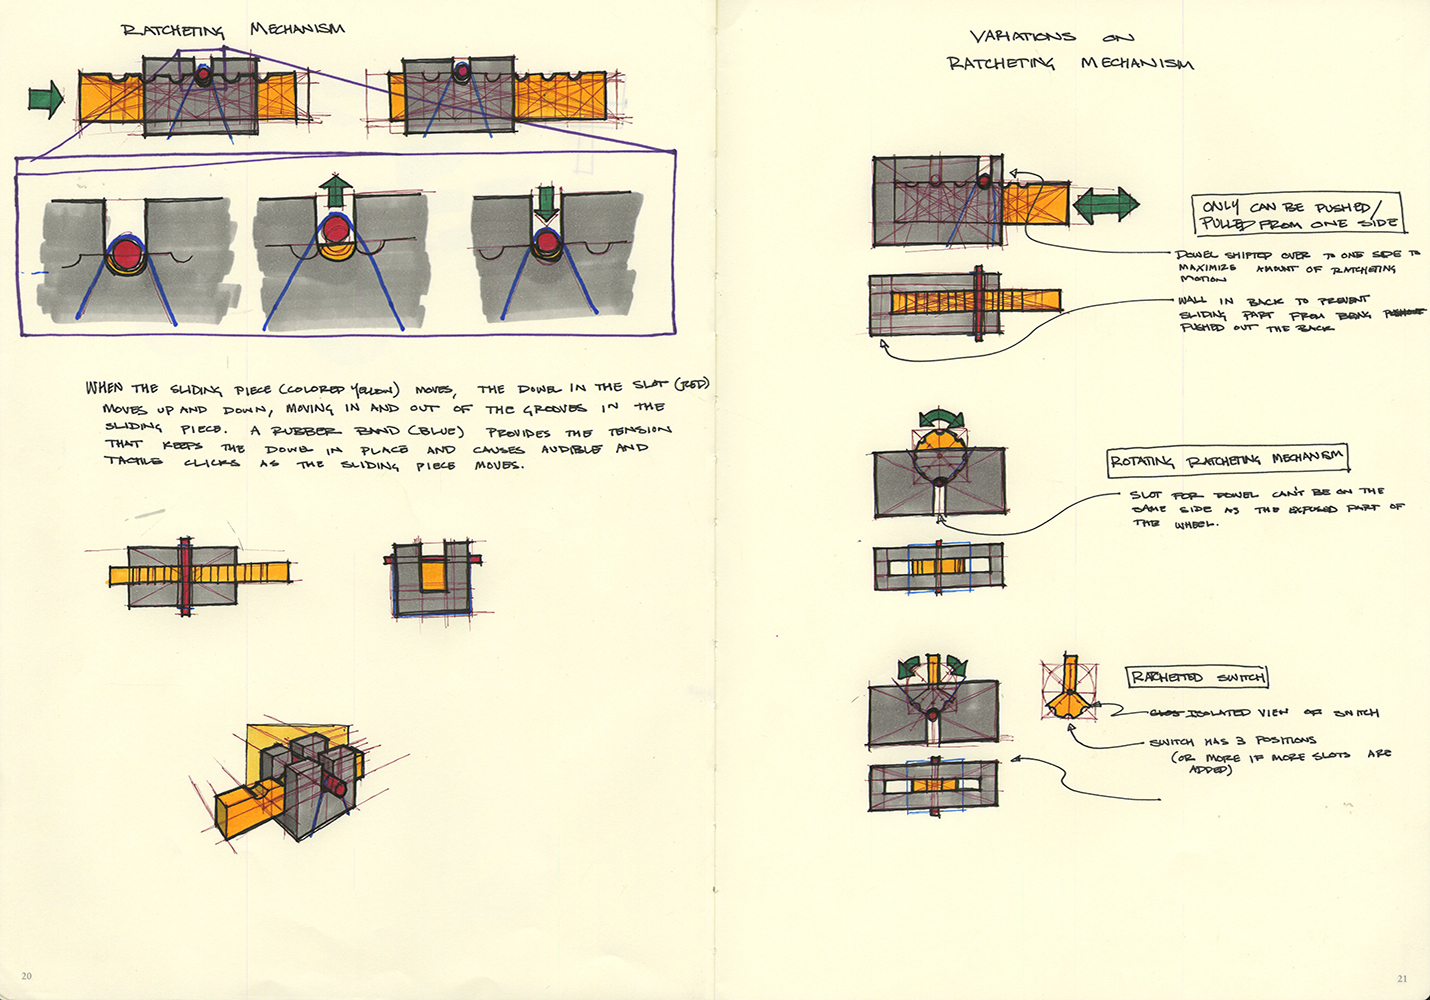 RATCHETING MECHANISM
WHEN THE SLIDING PIECE (COLORED YELLOW) MOVES, THE DOWEL IN THE SLOT (RED)
MOVES UP AND DOWN, MOVING IN AND OUT OF THE GROOVES IN THE
SLIDING PIECE. A RUBBER BAND (BLUE) PROVIDES THE TENSION
THAT KEEPS THE DOWEL IN PLACE AND CAUSES AUDIBLE AND
TACTILE CLICKS AS THE SLIDING PIECE MOVES.
20
VARIATIONS ON
RATCHETING MECHANISM
ONLY CAN BE PUSHED/
PULLED FROM ONE SIDE
DOWEL SHIFTED OVER TO ONE SIDE TO
MAXIMIZE AMOUNT OF RATCHETING
MOTION
WALL IN BACK TO PREVENT
SLIDING PART FROM BEING
PUSHED OUT THE BACK
ROTATING RATCHETING MECHANISM
SLOT FOR DOWEL CAN'T BE ON THE
SAME SIDE AS THE EXPOSED PART OF
THE WHEEL.
RATCHETED SWITCH
ISOLATED VIEW OF SWITCH
SWITCH HAS 3 POSITIONS
(OR MORE IF MORE SLOTS ARE
ADDED)
21